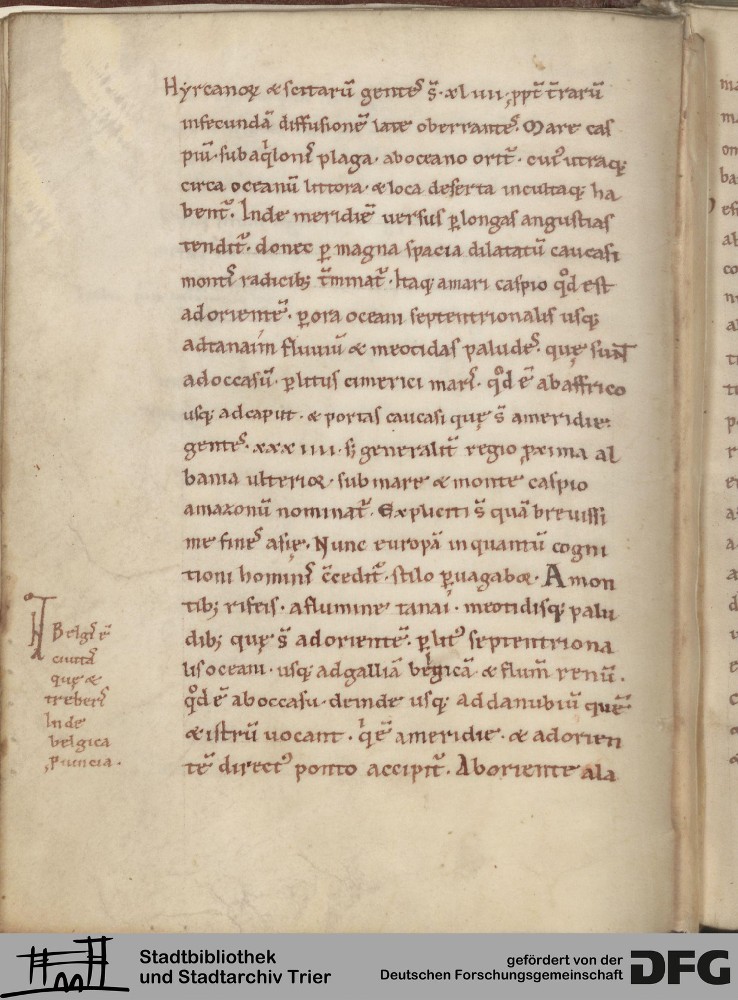 Hyrcanoꝝ & scitarū gente᷒ s̄. xl iiii. ꝓpt̄ t̄rarū
infecundā diffusionē late oberrante᷒. Mare cas
piū. sub aq̇lon᷒ plaga. aboceano orit᷑. cui᷒ utraq;
circa oceanū littora. & loca deserta incultaq; ha
bent᷑. Inde meridiē uersus ꝑ longas angustias
tendit᷑. donec ꝑ magna spacia dilatatū caucasi
mont᷒ radicib; t̄minat᷑. Itaq; amari caspio qͦd est
ad orientē. ꝑ ora oceani septentrionalis usq;
ad tanaim fluuiū & meotidas palude᷒. quę sunt
ad occasū. ꝑ litus cimerici mar᷒. qͦd ē ab affrico
usq; ad caput. & portas caucasi quę s̄ ameridie.
gente᷒. xxx iiii. s; generalit᷑ regio ꝓxima al
bania ulterior. sub mare & monte caspio
amazonū nominat᷑. Expliciti s̄ quā breuissi
me fine᷒ asię. Nunc europā inquantū cogni
tioni homin᷒ c̄cedit᷑. stilo ꝑuagabor. A mon
tib; rifeis. aflumine tanai. meotidisq; palu
dib; quę s̄ ad orientē. ꝑ lit᷒ septentriona
lis oceani. usq; ad galliā belgicā & flum̄ renū.
qͦd ē aboccasu. deinde usq; ad danubiū quē
& istrū uocant. q̇ ē ameridie. & ad orien
tē direct᷒ ponto accipit᷑. Aboriente ala
Belg᷒ ē
ciuitā
quę &
treber᷒
Inde
belgica
ꝓuincia.
Stadtbibliothek
und Stadtarchiv Trier
gefördert von der
Deutschen Forschungsgemeinschaft
DFG